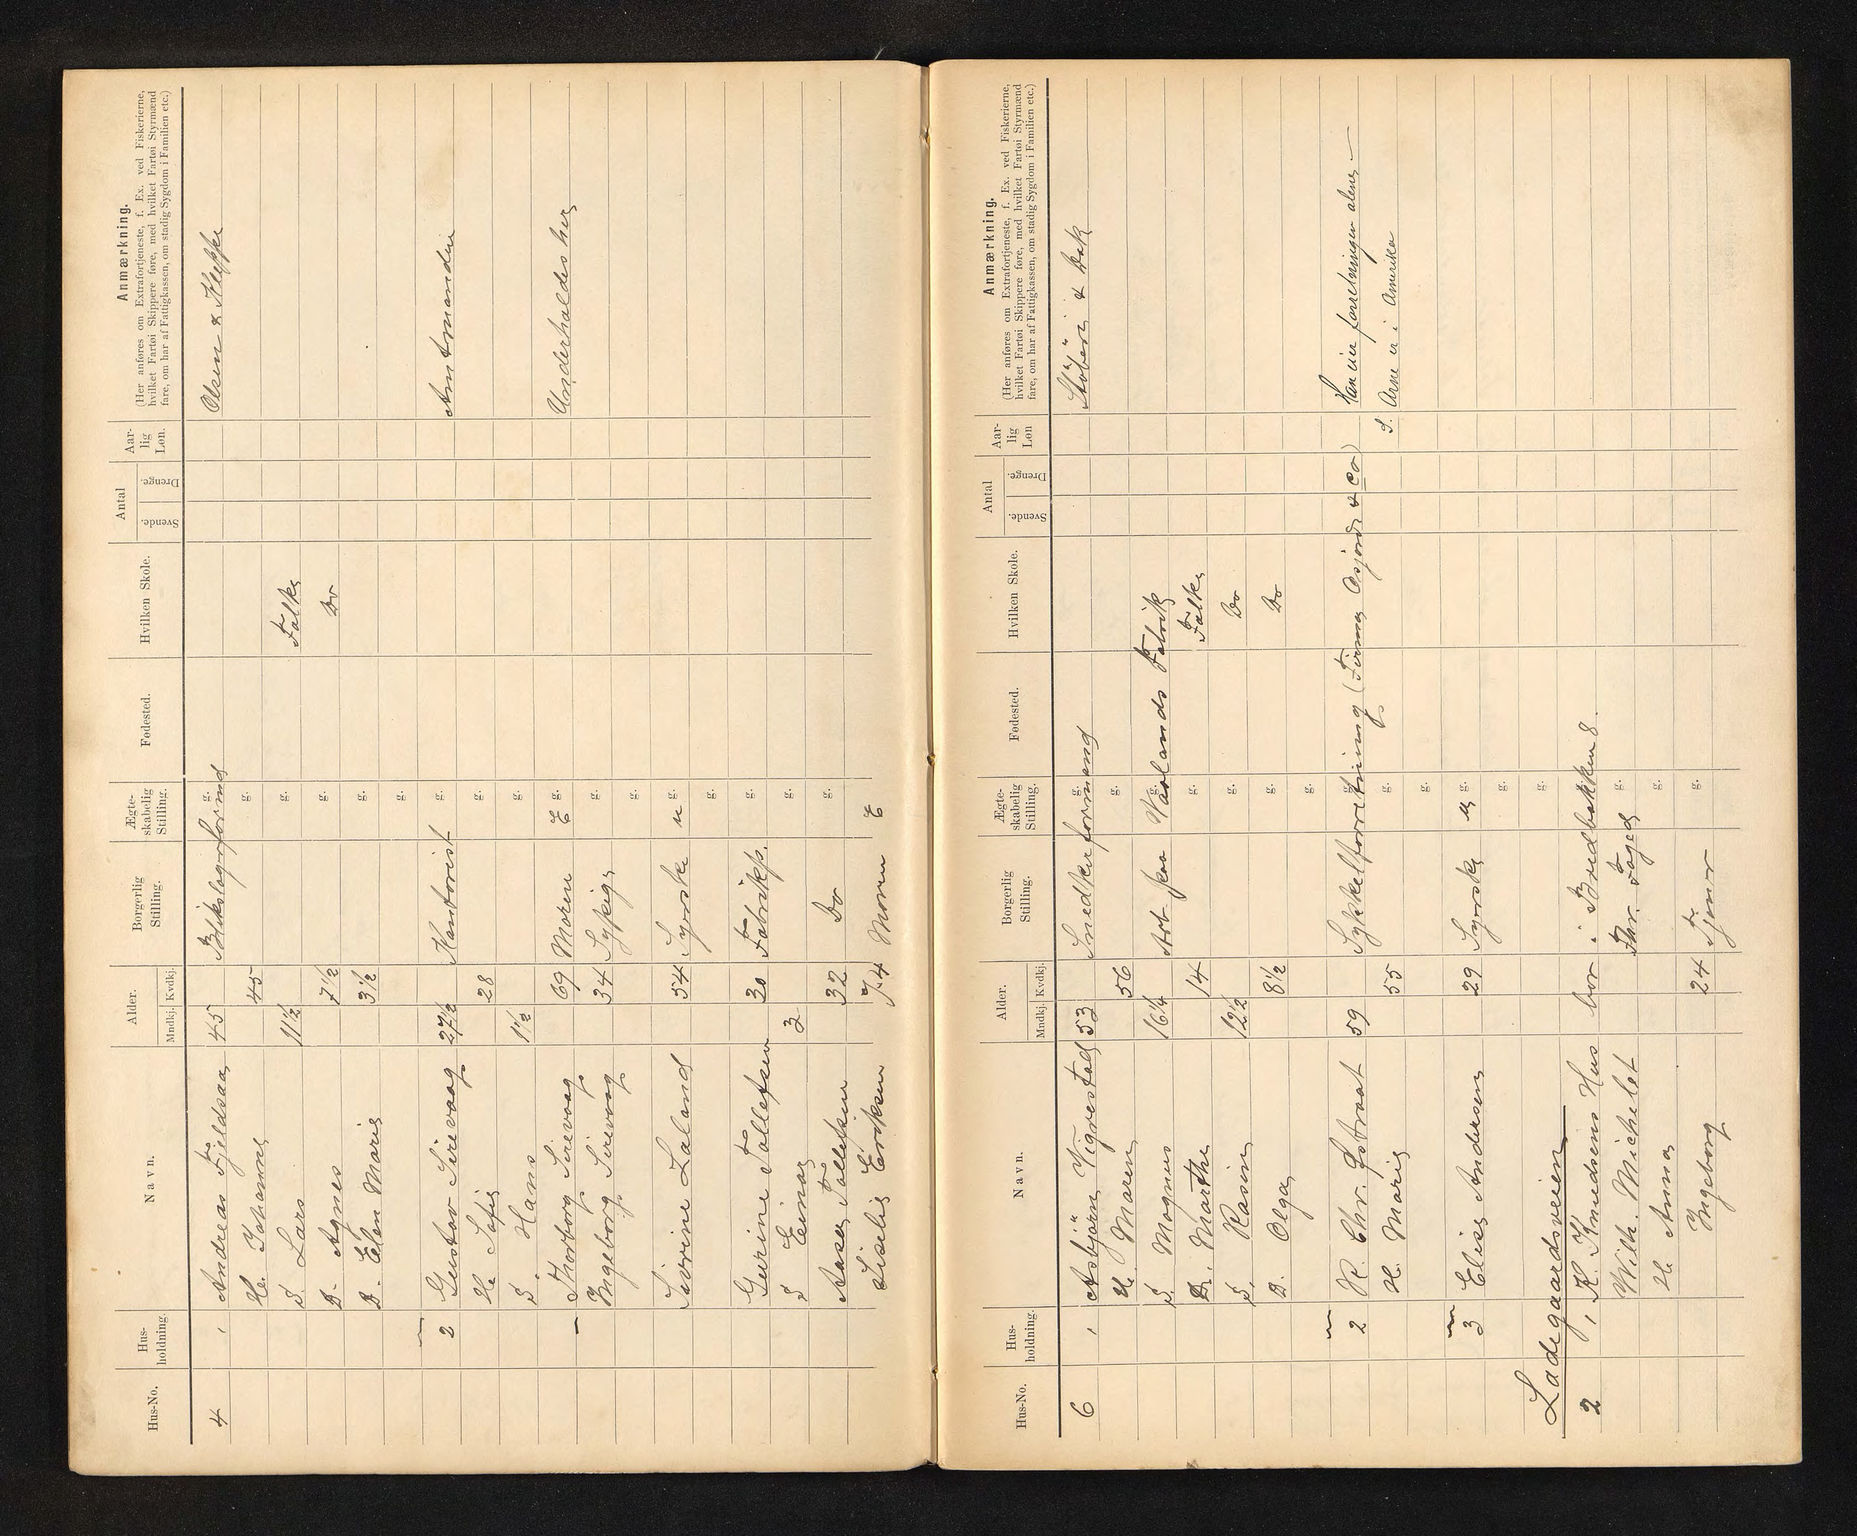 Hus-No.
Hus-
holdning.
Navn.
Alder.
Mndkj. Kvdkj.
Borgerlig
Stilling.
Ægte-
skabelig
Stilling.
Fødested.
Hvilken Skole.
Antal
Svende. Drenge.
Aar-
lig
Løn.
Anmærkning.
(Her anføres om Extrafortjeneste, f. Ex. ved Fiskerierne,
hvilket Fartøi Skippere føre, med hvilket Fartøi Styrmænd
fare, om har af Fattigkassen, om stadig Sygdom i Familien etc.)
4 1 Andreas Fjeldsaa 45 Blikslagerformd g. Olsen & Kleppe
H. Johanne 45 g.
S. Lars 11½ g. Folke
D. Agnes 7½ g. Do
D. Elen Marie 3½ g.
g.
2 Gustav Sirevaag 27½ Kontorist g. Amtmanden
H. Sofie 28 g.
S. Hans 1½ g.
– Thorborg Sirevaag 69 Moren g. E Underholdes her
Ingeborg Sirevaag 34 Sypige g.
g.
Sivrine Laland 54 Syerske g. u
g.
Gurine Tollefsen 30 Fabrikp. g.
S Einar 3 g.
Aase Tollefsen 32 Do g.
Liselie Eriksen 74 Moren E
Hus-No.
Hus-
holdning.
Navn.
Alder.
Mndkj. Kvdkj.
Borgerlig
Stilling.
Ægte-
skabelig
Stilling.
Fødested.
Hvilken Skole.
Antal
Svende. Drenge.
Aar-
lig
Løn
Anmærkning.
(Her anføres om Extrafortjeneste, f. Ex. ved Fiskerierne,
hvilket Fartøi Skippere føre, med hvilket Fartøi Styrmænd
fare, om har af Fattigkassen, om stadig Sygdom i Familien etc.)
6 1 Asbjørn Vigrestad 53 Snedkerformand g. Støberi & Dok
H. Maren 56 g.
S. Magnus 16¼ Arb paa Varlands Fabrik g.
D. Marthe 14 g. Folke
S. Rasin 12½ g. Do
D. Olga 8½ g. Do
g.
2 R. Chr. Østraat 59 Sykkelforretning (Firma Osjord & Co) g. Han eier forretningen alene –
H. Marie 55 g. S. Arne er i Amerika
g.
3 Elise Andersen 29 Syerske g. u
g.
Ladegaardsveien g.
2 1 K. Knudsens Hus bor i Bredbakken 8.
Wilh. Michelet g.
H. Anna g.
Ingeborg 24 Tjener g.